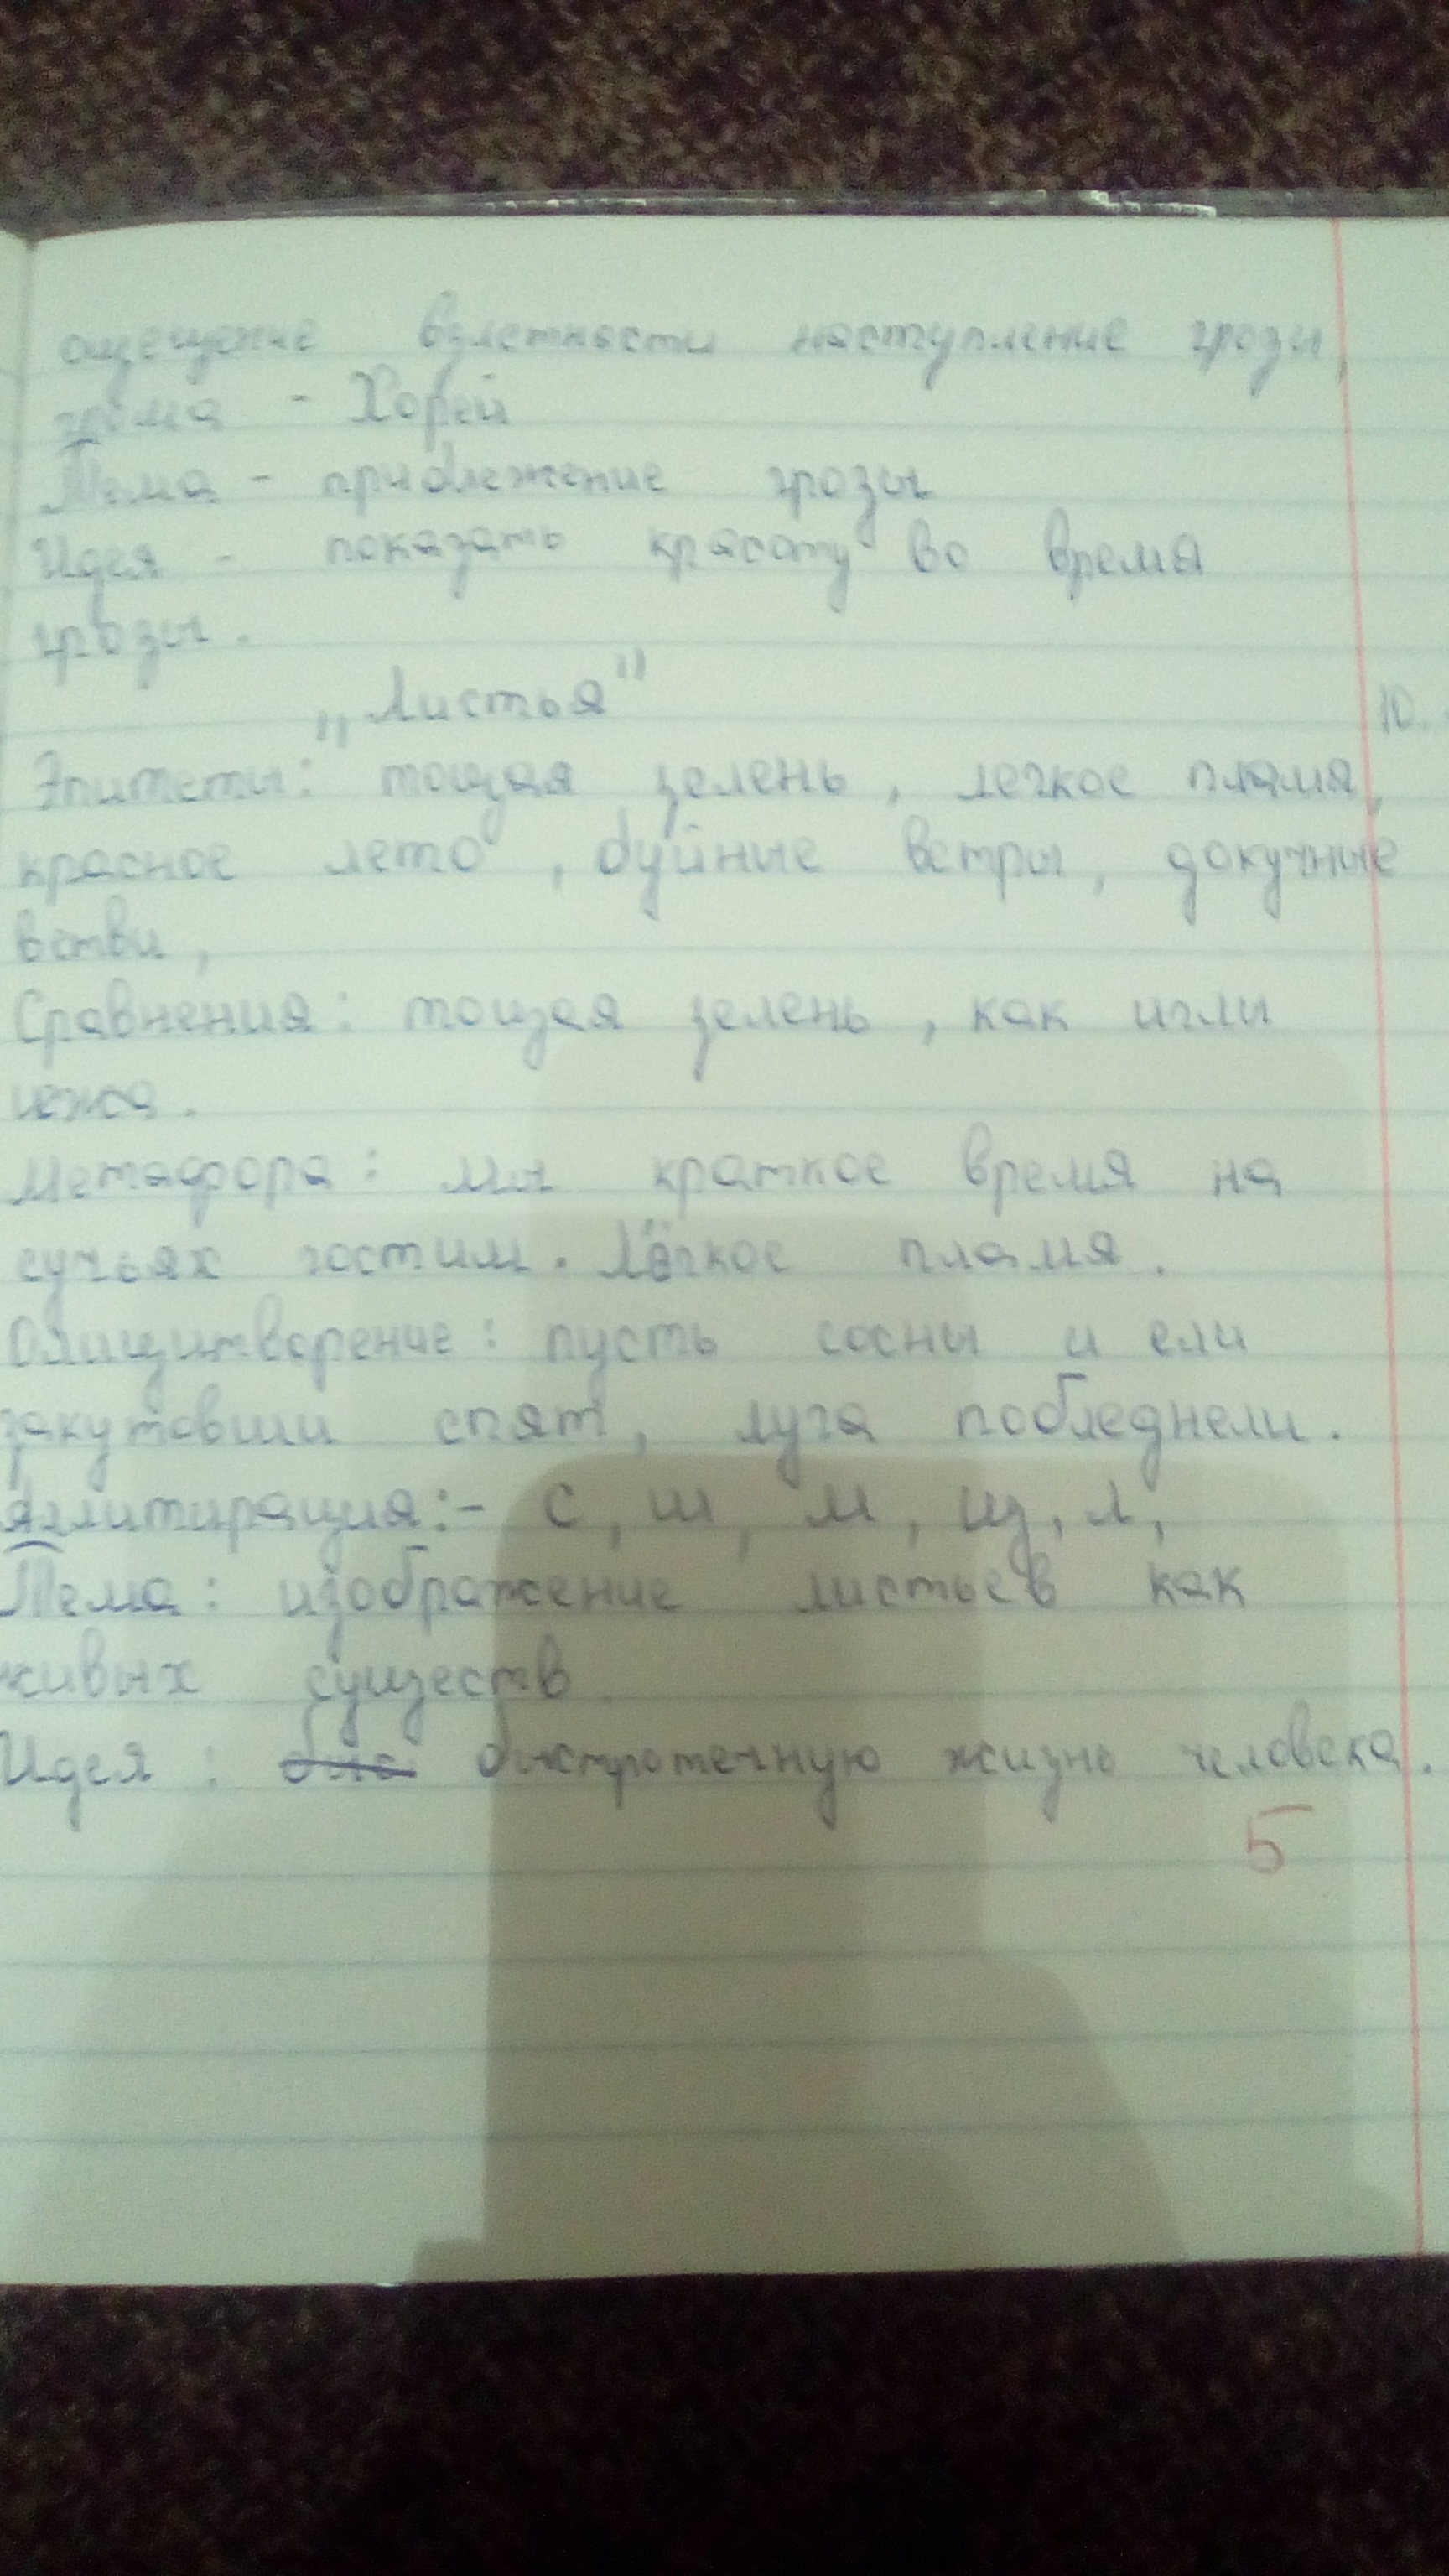 ощещение взлетности наступление грозы,
грома - Хорей
Тема - приближение грозы
Идея - показать красоту во время
грозы.
„Листья"
10.
Эпитеты: тощая зелень, легкое пламя,
красное лето, буйные ветры, докучные
ветви,
Сравнения: тощая зелень, как иглы
ежа.
Метафора: мы краткое время на
сучьях гостим. Лёгкое пламя.
Олицитворение: пусть сосны и ели
закутовши спят, луга побледнели.
Аллитирация:- с, ш, м, щ, л,
Тема: изображение листьев как
живых существ.
Идея: быс быстротечную жизнь человека.
5